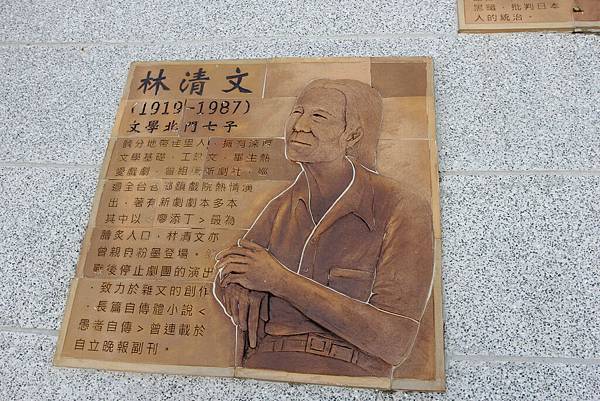 林清文
(1919~1987)
文學北門七子
鹽分地帶佳里人，擁有深厚
文學基礎，工詩文，畢生熱
愛戲劇，曾組織新劇社，巡
迴全台各鄉鎮戲院熱情演
出，著有新劇劇本多本
其中以＜廖添丁＞最為
膾炙人口，林清文亦
曾親自粉墨登場。
戰後停止劇團的演出
，致力於雜文的創作
，長篇自傳體小說＜
愚者自傳＞曾連載於
自立晚報副刊。
黑暗，批判日本
人的統治。